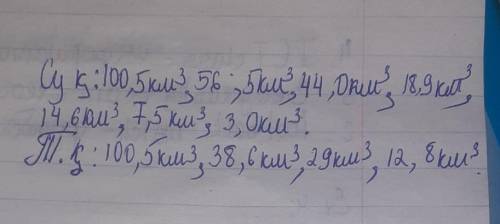 Су қ: 100,5км³, 56 ,5км³, 44,0км³, 18,9км³,
14,6км³, 7,5км³, 3,0км³.
Т.қ: 100,5км³, 38,6км³, 29км³, 12,8км³.